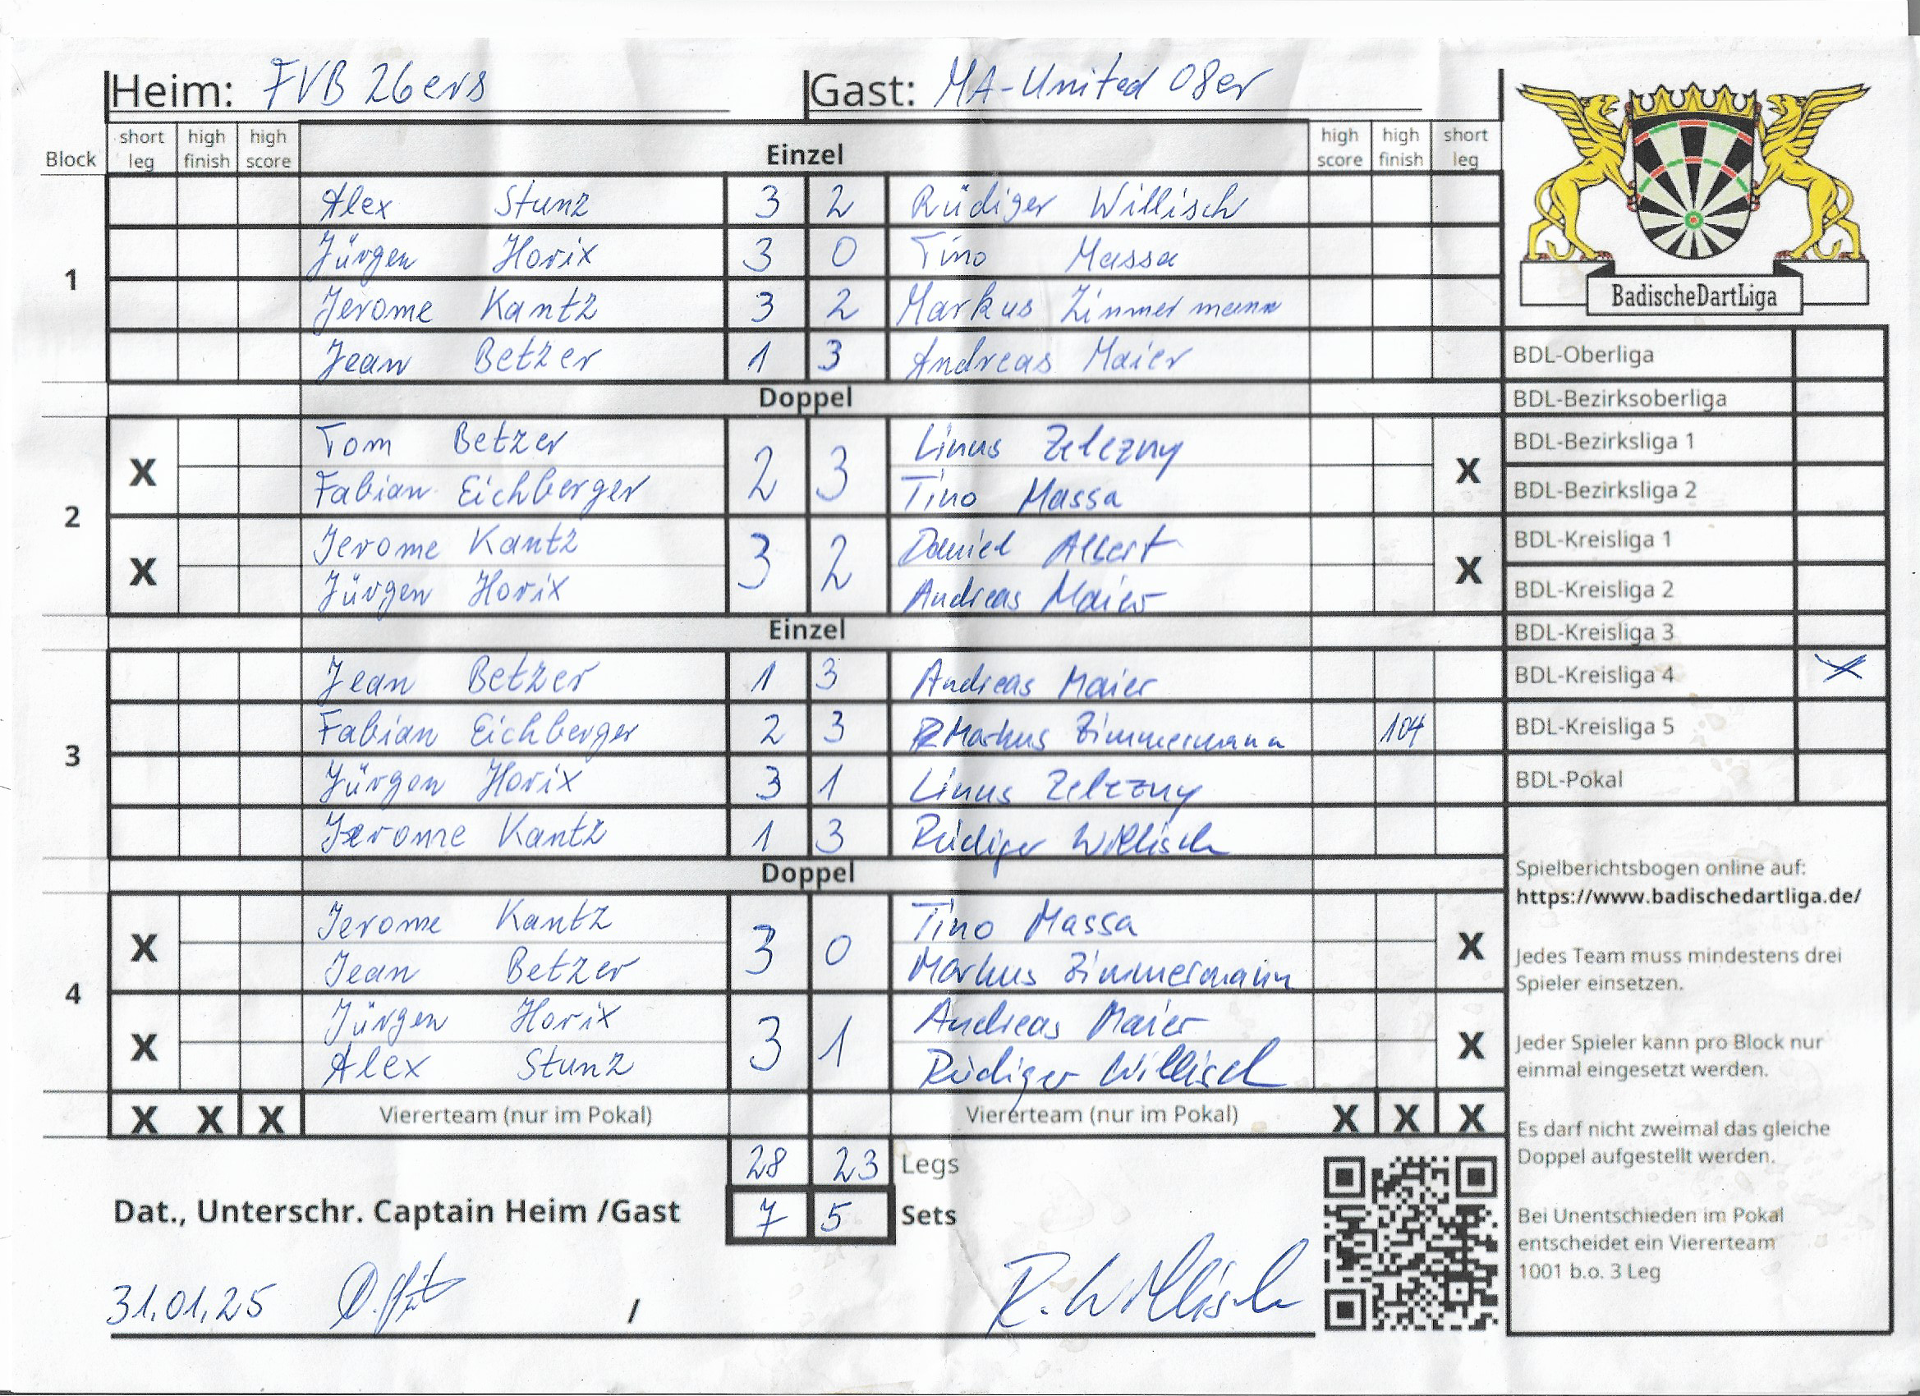 Heim: FVB 26ers Gast: MA-United 08er
Block short leg high finish high score Einzel high score high finish short leg
Alex Stunz 3 2 Rüdiger Willisch
1 Jürgen Horix 3 0 Tino Massa
Jerome Kantz 3 2 Markus Zimmermann
Jean Betzer 1 3 Andreas Maier
Doppel
Tom Betzer Linus Zelezny
X 2 3 X
Fabian Eichberger Tino Massa
2
Jerome Kantz Daniel Albert
X 3 2 X
Jürgen Horix Andreas Maier
Einzel
Jean Betzer 1 3 Andreas Maier
Fabian Eichberger 2 3 Markus Zimmermann 104
3
Jürgen Horix 3 1 Linus Zelezny
Jerome Kantz 1 3 Rüdiger Willisch
Doppel
Jerome Kantz Tino Massa
X 3 0 X
Jean Betzer Markus Zimmermann
4
Jürgen Horix Andreas Maier
X 3 1 X
Alex Stunz Rüdiger Willisch
X X X Viererteam (nur im Pokal) Viererteam (nur im Pokal) X X X
28 23 Legs
Dat., Unterschr. Captain Heim /Gast 7 5 Sets
31.01.25 / R. Willisch
BadischeDartLiga
BDL-Oberliga
BDL-Bezirksoberliga
BDL-Bezirksliga 1
BDL-Bezirksliga 2
BDL-Kreisliga 1
BDL-Kreisliga 2
BDL-Kreisliga 3
BDL-Kreisliga 4 X
BDL-Kreisliga 5
BDL-Pokal
Spielberichtsbogen online auf:
https://www.badischedartliga.de/
Jedes Team muss mindestens drei
Spieler einsetzen.
Jeder Spieler kann pro Block nur
einmal eingesetzt werden.
Es darf nicht zweimal das gleiche
Doppel aufgestellt werden.
Bei Unentschieden im Pokal
entscheidet ein Viererteam
1001 b.o. 3 Leg